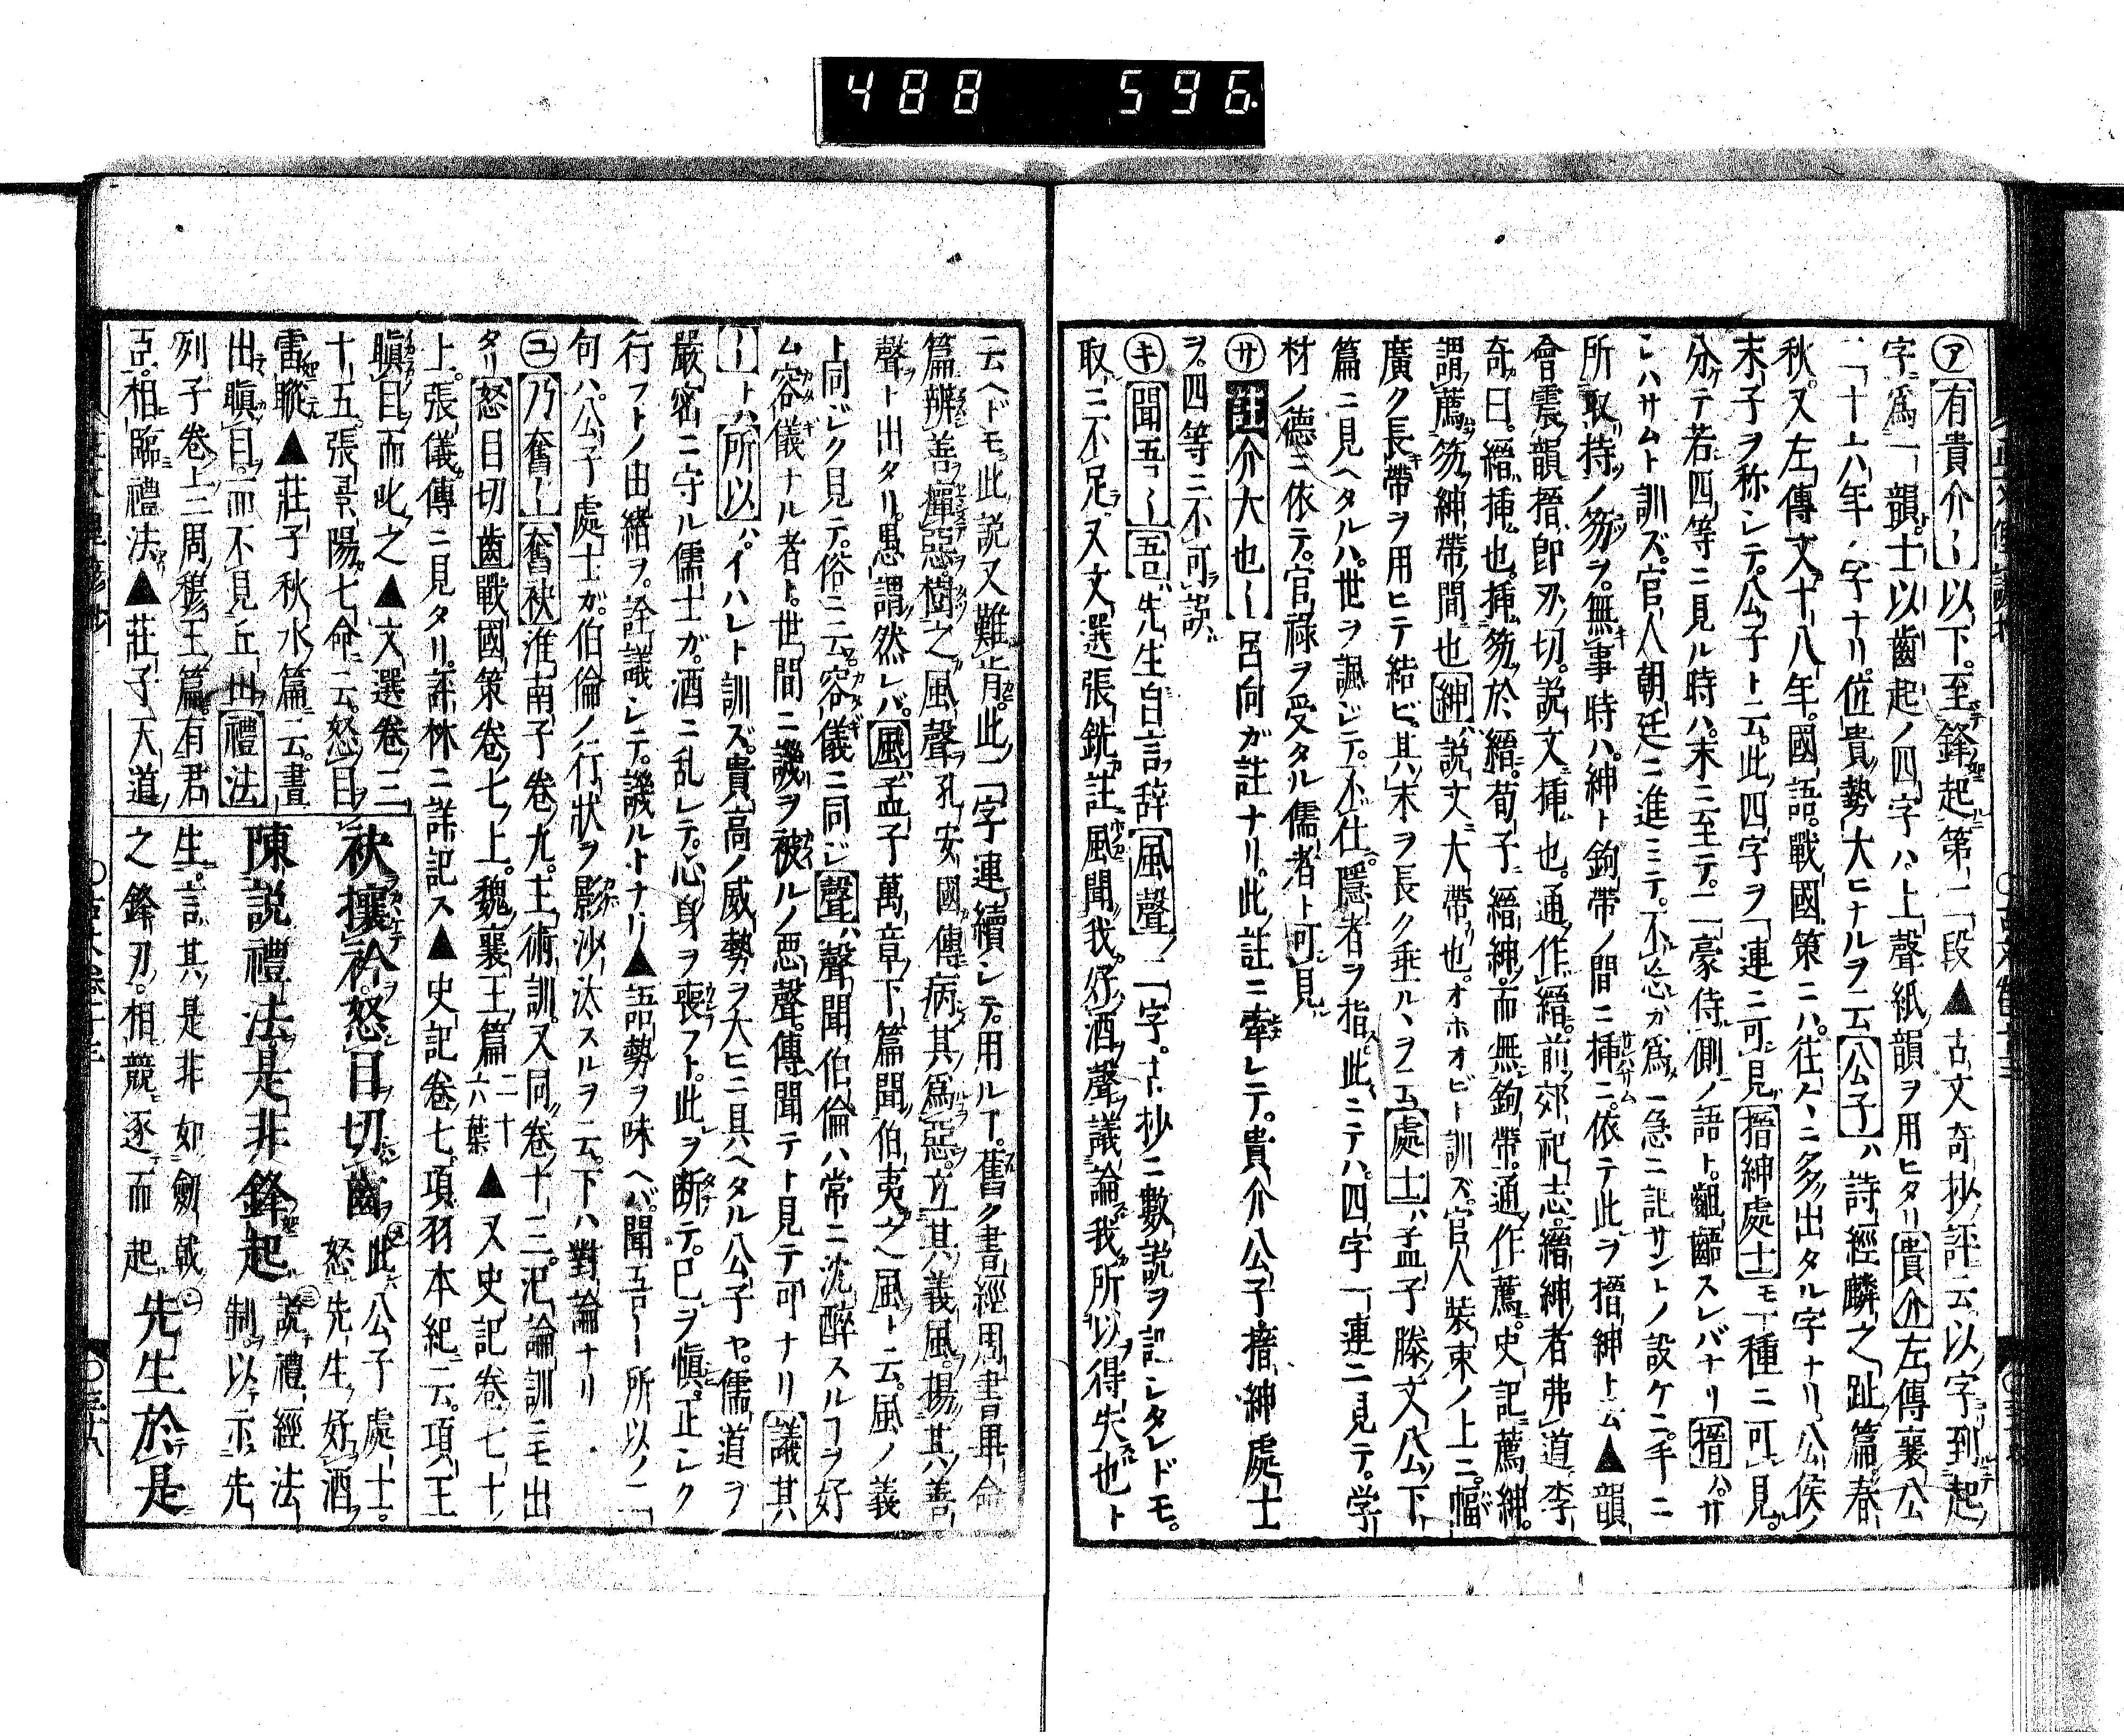 488 596
㋐有貴介〡以下至鋒起第二段▲古文奇抄評云以字到起
字爲一韻士以齒起ノ四字ハ上聲紙韻ヲ用ヒタリ貴介左傳襄公
二十六年ノ字ナリ位貴勢大ヒナルヲ云公子ハ詩經麟之趾篇春
秋又左傳文十八年國語戰國策ニハ往々ニ多出タル字ナリ公侯ノ
末子ヲ称シテ公子ト云此四字ヲ一連ニ可見搢紳處士モ一種ニ可見
分テ若四等ニ見ル時ハ末ニ至テ二豪侍側ノ語ト齟齬スレバナリ搢ハサ
シハサムト訓ズ官人朝廷ニ進ミテ不忘カ爲ノ急ニ記サントノ設ケニ手ニ
所取持ノ笏ヲ無事時ハ紳ト鉤帶ノ間ニ挿ニ依テ此ヲ搢紳ト云▲韻
會震韻搢即刃切說文挿也通作縉前郊祀志縉紳者弗道李
奇曰縉挿也挿笏於縉荀子縉紳而無鉤帶通作薦史記薦紳
謂薦笏紳帶間也紳說文大帶也オホオビト訓ズ官人裝束ノ上ニ幅
廣ク長帶ヲ用ヒテ結ビ其末ヲ長ク垂ルヽヲ云處士ハ孟子滕文公下
篇ニ見ヘタルハ世ヲ諷ジテ不仕隱者ヲ指此ニテハ四字一連ニ見テ学
材ノ德ニ依テ官祿ヲ受タル儒者ト可見
㋚註介大也〡呂向ガ註ナリ此註ニ牽レテ貴介公子搢紳處士
ヲ四等ニ不可說
㋖聞吾〡吾先生自言辞風聲ノ二字ヲ抄ニ數說ヲ記シタレドモ
取ニ不足又文選張銑註風聞我好酒聲議論我所以得失也ト
云ヘドモ此說又難肯此二字連續シテ用ルヿ舊ク書經周書畢命
篇辨善癉惡樹之風聲孔安國傳病其爲惡立其義風揚其善
聲ト出タリ愚謂然レバ風孟子萬章下篇聞伯夷之風ト云風ノ義
ト同ジク見テ俗ニ云容儀ニ同ジ聲ハ聲聞伯倫ハ常ニ沈醉スルヿヲ好
ム容儀ナル者ト世間ニ譏ヲ被ルノ惡聲傳聞テト見テ可ナリ議其
〡トハ所以ハイハレト訓ズ貴高ノ威勢ヲ大ヒニ具ヘタル公子ヤ儒道ヲ
嚴密ニ守ル儒士ガ酒ニ乱レテ心身ヲ喪フト此ヲ断テ已ヲ愼正シク
行フトノ由緒ヲ詮議シテ譏ルトナリ▲語勢ヲ味ヘバ聞吾〡所以ノ二
句ハ公子處士ガ伯倫ノ行狀ヲ影沙汰スルヲ云下ハ對論ナリ
㋴乃奮〡奮袂淮南子卷九主術訓又同卷十三氾論訓ニモ出
タリ怒目切齒戰國策卷七上魏襄王篇二十六葉▲又史記卷七十
上張儀傳ニ見タリ評林ニ詳記ス▲史記卷七項羽本紀云項王
瞋目而叱之▲文選卷三
十五張景陽七命云怒目
雷瞛▲莊子秋水篇云晝
出瞋目而不見丘山禮法
列子卷上三周穆王篇有君
臣相臨禮法▲莊子天道
袂攘衿怒目切齒此公子處士怒先生好酒
陳說禮法是非鋒起說禮經法制以示先
生言其是非如劍戟
之鋒刃相競逐而起先生於是